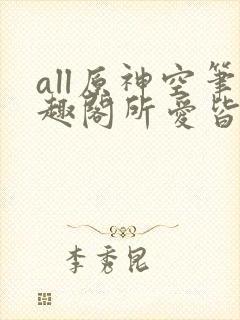 all原神空笔
趣阁所爱皆
李秀昆